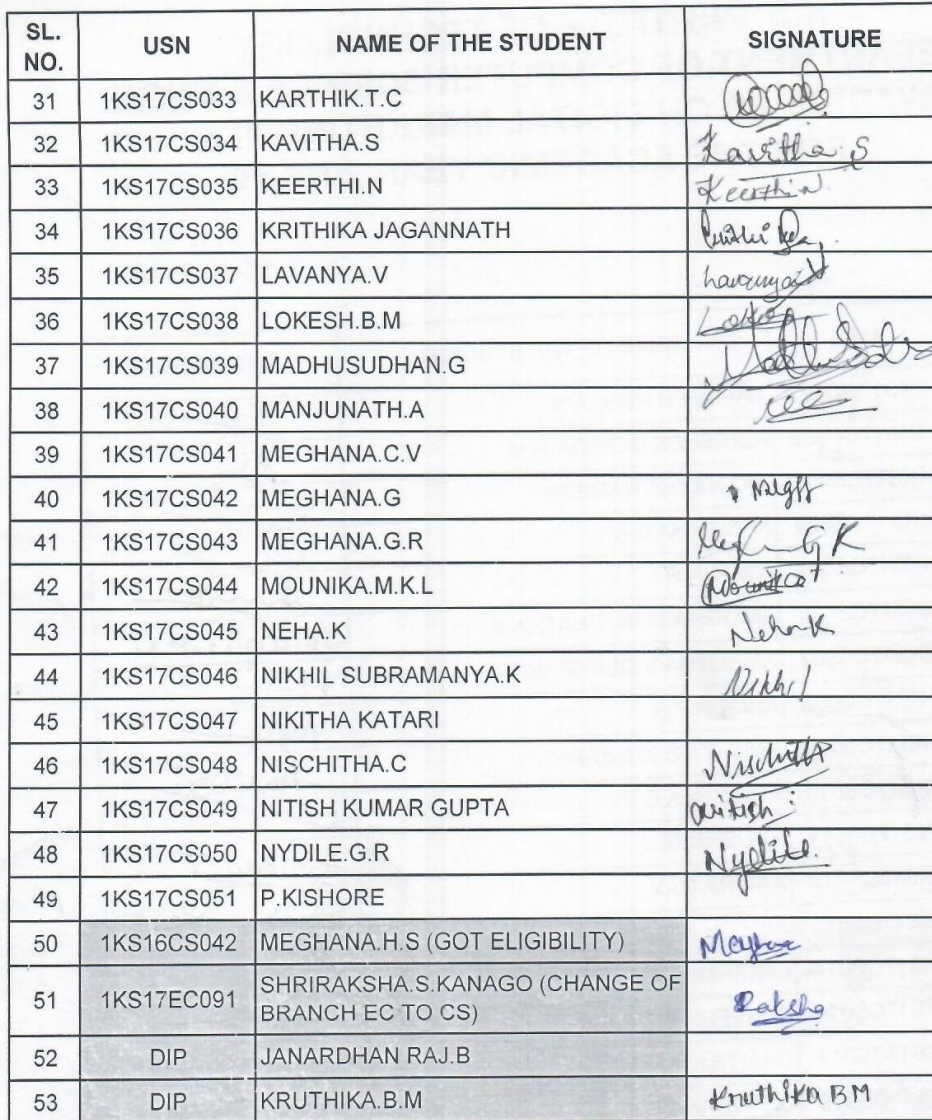 SL. NO. USN NAME OF THE STUDENT SIGNATURE
31 1KS17CS033 KARTHIK.T.C
32 1KS17CS034 KAVITHA.S Kavitha.S
33 1KS17CS035 KEERTHI.N Keerthi.N
34 1KS17CS036 KRITHIKA JAGANNATH
35 1KS17CS037 LAVANYA.V Lavanya.V
36 1KS17CS038 LOKESH.B.M
37 1KS17CS039 MADHUSUDHAN.G
38 1KS17CS040 MANJUNATH.A
39 1KS17CS041 MEGHANA.C.V
40 1KS17CS042 MEGHANA.G
41 1KS17CS043 MEGHANA.G.R
42 1KS17CS044 MOUNIKA.M.K.L Mounika
43 1KS17CS045 NEHA.K Neha.K
44 1KS17CS046 NIKHIL SUBRAMANYA.K Nikhil
45 1KS17CS047 NIKITHA KATARI
46 1KS17CS048 NISCHITHA.C Nischitha
47 1KS17CS049 NITISH KUMAR GUPTA Nitish
48 1KS17CS050 NYDILE.G.R Nydile.
49 1KS17CS051 P.KISHORE
50 1KS16CS042 MEGHANA.H.S (GOT ELIGIBILITY)
51 1KS17EC091 SHRIRAKSHA.S.KANAGO (CHANGE OF
BRANCH EC TO CS) Raksha
52 DIP JANARDHAN RAJ.B
53 DIP KRUTHIKA.B.M Kruthika B M